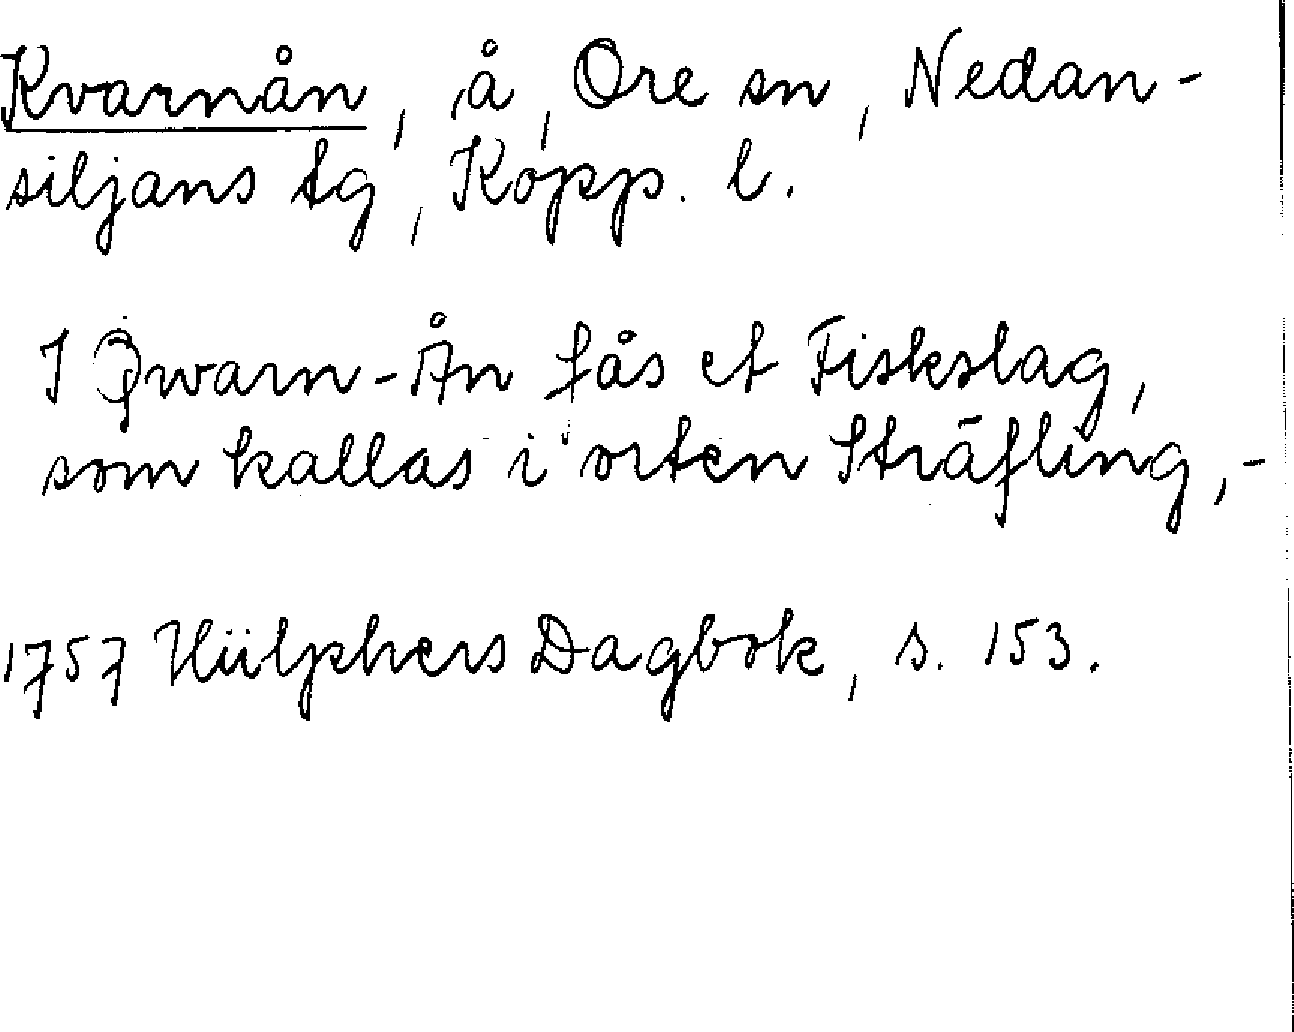 Kvarnån, å, Ore sn, Nedan-
siljans tg, Kopp. l.
I Qwarn-Ån fås et Fiskslag,
som kallas i orten Sträfling,-
1757 Hülphers Dagbok, s. 153.